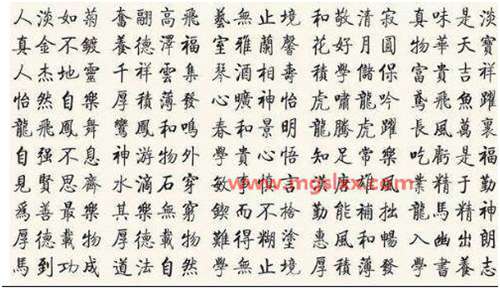 人淡如菊 奮翮高飛 藝無止境 和敬清寂 真味是淡
真金不鍍 養德澤福 室雅蘭馨 花好月圓 物華天寶
人杰地靈 千祥雲集 琴酒相壽 積學儲保 富貴吉祥
怡然自樂 厚積薄發 曠神怡 虎嘯龍吟 鳶飛魚躍
龍飛鳳舞 鸞鳳和鳴 春和景明 龍騰虎躍 長風萬裏
自强不息 神游物外 學貴心悟 知足常樂 吃虧是福
見賢思齊 水滴石穿 敏慎言 業精于勤
www.mgslxx.com
爲善最樂 其樂無窮 鍥而不捨 勤能補拙 龍馬精神
厚德載物 厚德載物 難得糊塗 惠風和暢 入幽出朗
馬到功成 道法自然 學無止境 厚積薄發 學書養志